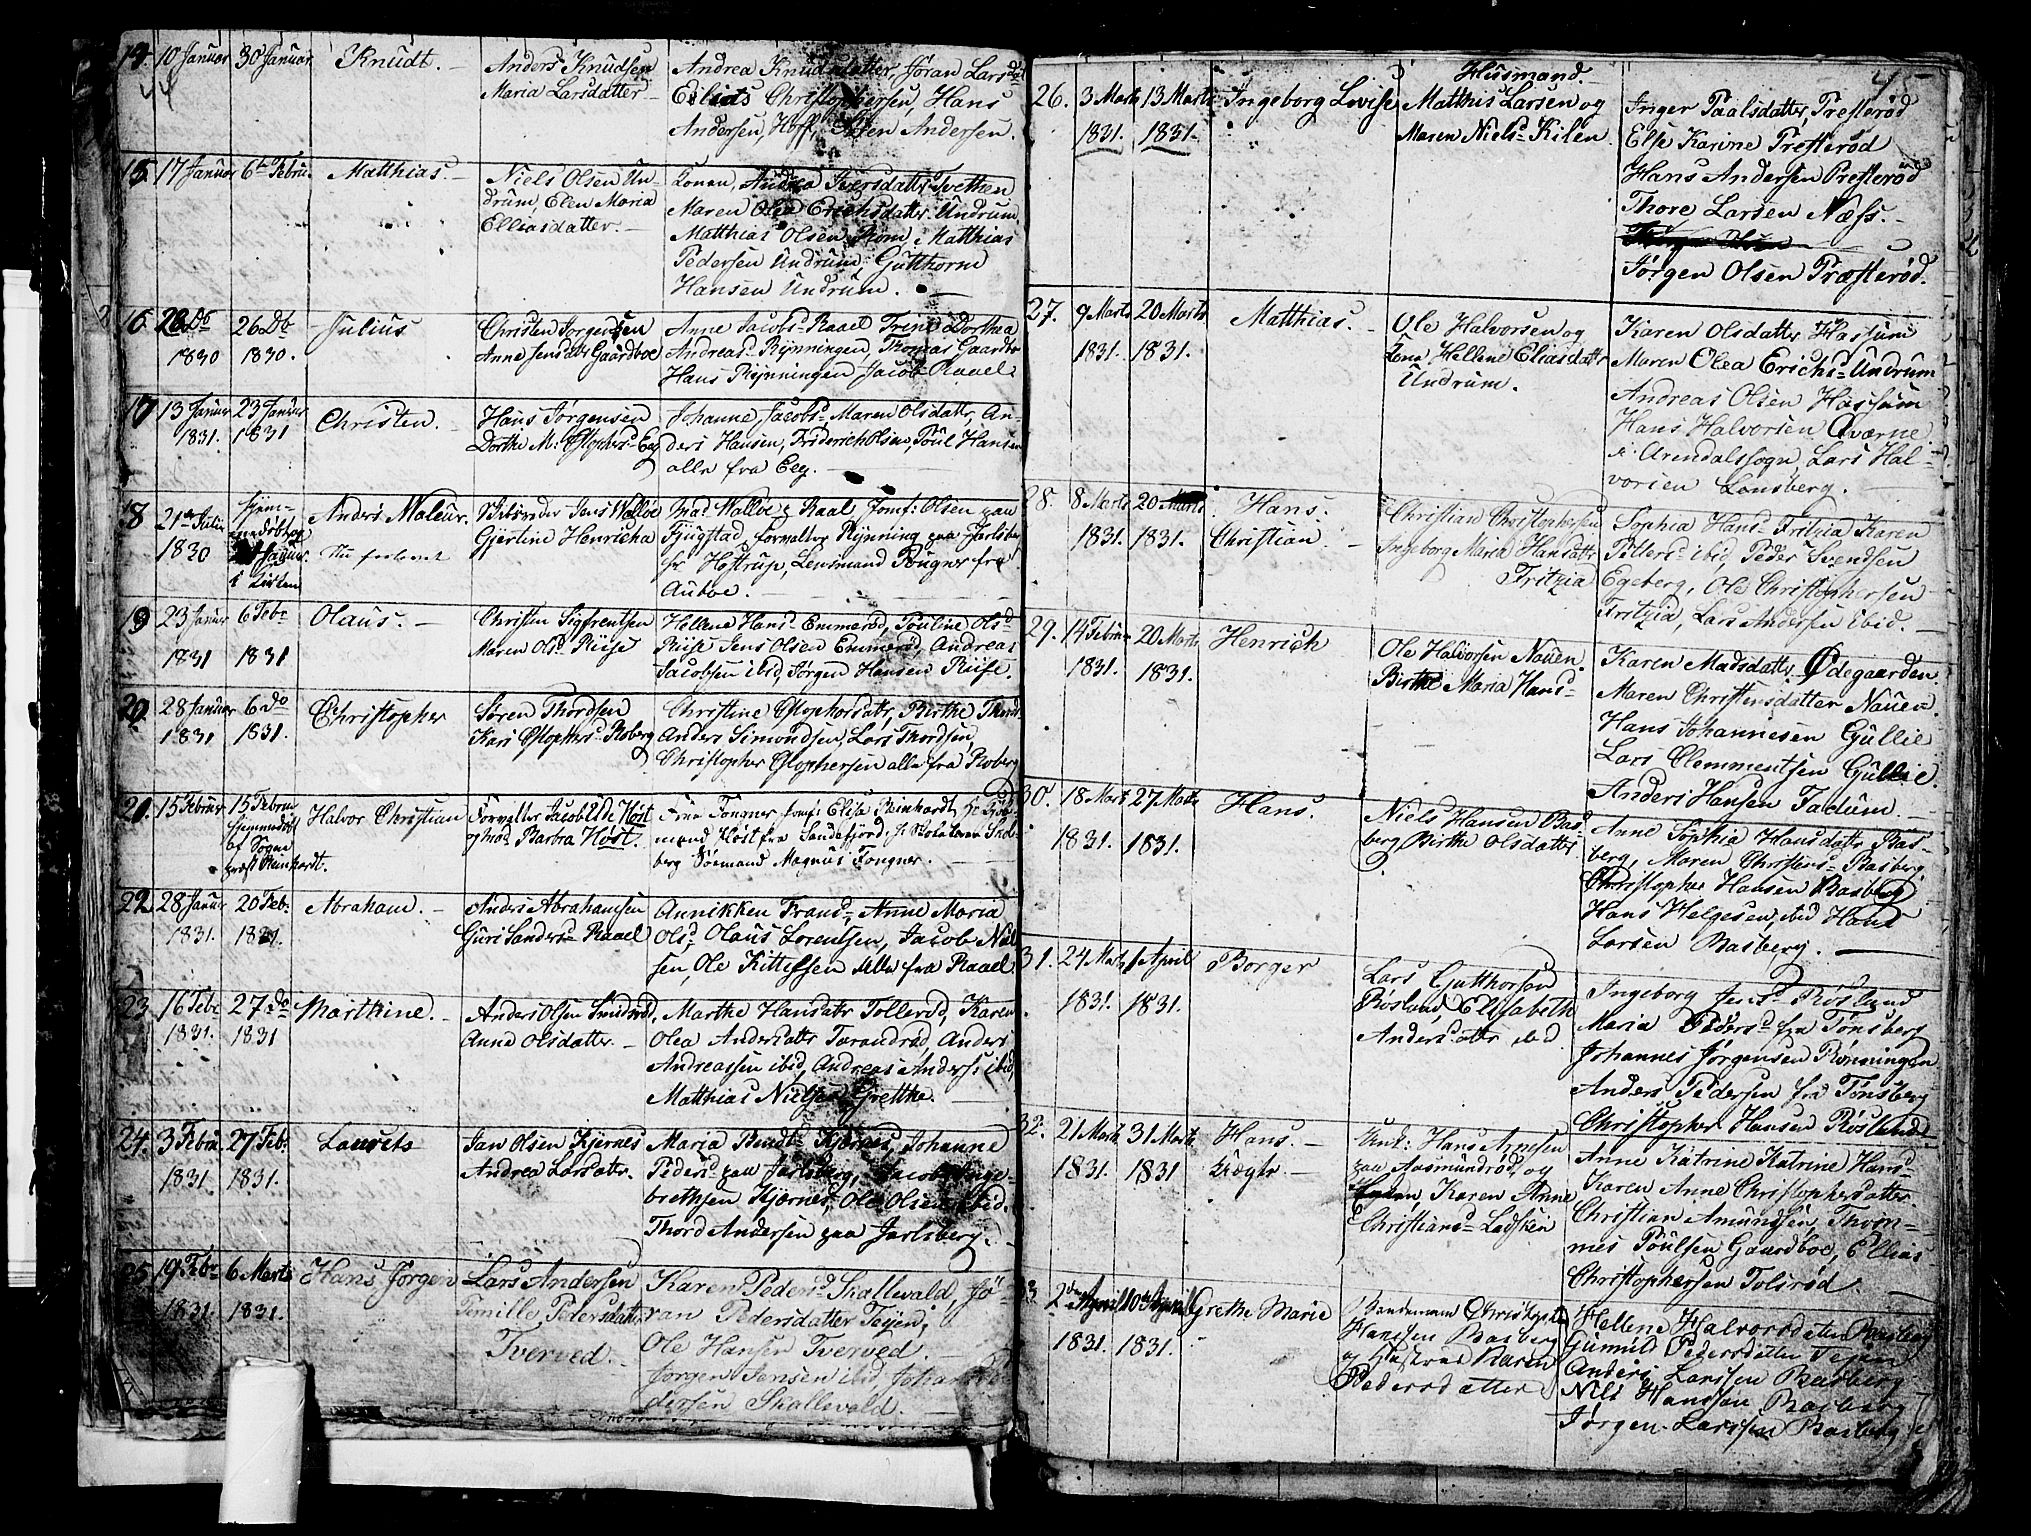 14. 10 Januar 30 Januar Knudt. Anders Knudsen Maria Larsdatter Andrea Knudsdatter, Jøran Larsd
Elias Christophersen, Hans
Andersen, Hoff, Andersen.
15. 17 Januar 6te Februar Matthias. Niels Olsen Undrum, Elen Maria Elliasdatter. Konen, Andrea Iversdatter Tvethen
Maren Olea Erichsdatter Undrum
Matthias Olsen Rom, Matthias
Pedersen Undrum, Gutthorm
Hansen Undrum.
16. 26 Dbr 1830 26 Db 1830. Julius Christen Jørgensen Anne Jensdatr Gaardboe Anne Jacobsd Raael Trine Dorthea
Andreasd Rÿnningen, Thomas Gaardbo
Hans Rÿnningen Jacob Raael.
17 13 Januar 1831. 23 Januar 1831 Christen. Hans Jørgensen Dorthe M: Cstophersd Eeg Johanne Jacobsd Maren Olsdatr, An-
ders Hansen, Friderich Olsen, Poul Hansen
alle fra Eeg.
18 21de Julii 1830 hjemmedøbt Januar i Kirken Anders Maleur. Nu forløvet Jens Walløe Gjertine Henricha Mad. Walløe Raal Jomf: Olsen paa
Fjugstad, forvalter Rÿnning paa Jarlsberg
hr Høstrup, Lensmand Pougner fra
Auboe.
19 23 Januar 1831 6 Febr 1831 Olaus. Christen Sigfrentsen Maren Olsd Riise Hellene Hansd Emmerød, Pouline Olsd
Riise Jens Olsen Emmerød, Andreas
Jacobsen ibid, Jørgen Hansen Riise.
20. 28 Januar 1831 6 Do 1831. Christopher Søren Thordsen Kari Cstophersd Roberg Christine Cstophersdatr, Birthe Thords
Anders Simondsen, Lars Thordsen,
Christopher Cstophersen alle fra Roberg
21. 15 Februar 15 Februar hjemmedøbt af Sogneprest Reinhardt. Halvor Christian Forvalter Jacob Høst og Mad. Barbra Høst. Fongner Jomf: Elisa Reinhardt, hr
mand Høst fra Sandefjord,
berg Sømand Magnus Fongner.
22 28 Januar 1831. 20 Febr. 1831. Abraham. Anders Abrahamsen Guri Sandersd Raael Annikken Fransd, Anne Maria
Olsd Olaus Lorentsen, Jacob Niel
sen, Ole Kittelsen Alle fra Raael.
23. 16 Febr 1831. 27 do 1831 Marthine. Anders Olsen Smidsrød, Anne Olsdatter. Marthe Hansdatr Tollerød, Karen
Olea Andersdatter Tarandrød, Anders
Andreassen ibid, Andreas Anderss: ibid,
Matthias Nielsen Grettke.
24. 3 Februar 1831 27 Feb. 1831. Lauritz Jan Olsen Kjernes Andrea Larsdatr. Maria Kjærnes, Johanne
Pedersd paa Jarlsberg, Jacob Inge-
brethsen Kjærnes, Ole Olsen ibid.
Thord Andersen paa Jarlsberg.
25 19 Febr 1831. 6 Marts 1831. Hans Jørgen Lars Andersen Pernille Pedersdatter Tverved. Karen Pedersd Skallevald, Jø-
ran Pedersdatter Teÿen;
Ole Hansen Tverved.
Jørgen Jensen ibid, Johan Pe-
dersen Skallevald.
26. 3 Marts 1831. 13 Marts 1831. Ingeborg Lovise Husmand Matthis Larsen og Maren Nielsd Kilen. Inger Paalsdatter, Presterød
Else Karine Presterød
Hans Andersen Presterød
Thore Larsen Næss.
Jørgen Olsen Præsterød.
27. 9 Marts 1831. 20 Marts 1831. Matthias. Ole Halvorsen og Kone Hellene Eliasdatr Undrum. Karen Olsdatter Hassum
Maren Olea Erichsd Undrum
Andreas Olsen Hassum
Hans Halvorsen Qværne
i Arendalssogn, Lars Hal-
vorsen Lensberg.
28. 8 Marts 1831. 20 Marts 1831. Hans. Christian. Christian Christophersen Ingeborg Maria Hansdatr Fritzia Sophia Hansd Fritzia Karen
Pettersd ibid, Peder Svendsen
Egeberg, Ole Christophersen
Fritzia, Lars Andersen ibid.
29. 14 Februar 1831. 20 Marts 1831. Henrich Ole Halvorsen Nauen. Birthe Maria Hans- Karen Madsdatter Ødegaarden
Maren Christensdatter Nauen.
Hans Johannesen Gullie
Lars Clemmentsen Gullie.
Anders Hansen Fadum.
30. 18 Marts 1831. 27 Marts 1831. Hans. Niels Hansen Basberg Birthe Olsdatter Anne Sophia Hansdatter Bas-
berg, Maren Christensd Basberg
Christopher Hansen Basberg
Hans Helgesen, ibid Hans
Larsen Basberg.
31. 24 Marts 1831. 1 April 1831. Borger Lars Gutthorsen Røsland Elisabeth Andersdattr ibid Ingeborg Jensd Røslund
Maria Pedersd fra Tønsberg
Johannes Jørgensen Rønningen
Anders Pedersen fra Tønsberg
Christopher Hansen Røslund
32. 21 Marts 1831. 31 Marts 1831 Hans. Hans Arnesen paa Aasmundrød, og Karen Anne Christiansd Anne Katrine Katrine Hansd
Karen Anne Christophersdatter
Christian Amundsen, Thom-
mes Poulsen Gaardboe, Ellias
Christophersen Tolsrød.
33 2den April 1831. 10de April 1831. Grethe Marie Christopher Hanssen Basberg og Hustrue Karen Pedersdatter Hellene Halvorsdatter Basberg
Gunnild Pedersdatter Tejen
Anders Larssen Basberg
Nils Hanssen Basberg
Jørgen Larssen Basberg